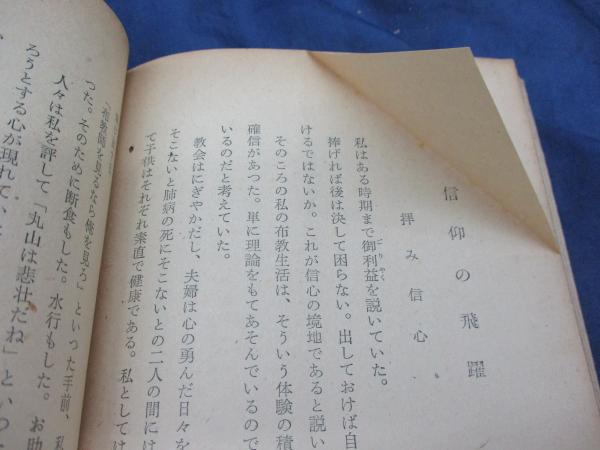 信仰の飛躍
拝み信心
私はある時期まで御利益を説いていた。
ごりやく
捧げれば後は決して困らない。出しておけば自
けるではないか。これが信心の境地であると説い
そのころの私の布教生活は、そういう体験の積
確信があつた。単に理論をもてあそんでいるので
いるのだと考えていた。
教会はにぎやかだし、夫婦は心の勇んだ日々を
そこないと肺病の死にそこないとの二人の間には
て子供はそれぞれ素直で健康である。私としては
「布教師を見るなら俺を見ろ」といった手前、私
つた。そのために断食もした。水行もした。お助
人々は私を評して「丸山は悲壮だね」といつ
ろうとする心が現れて、